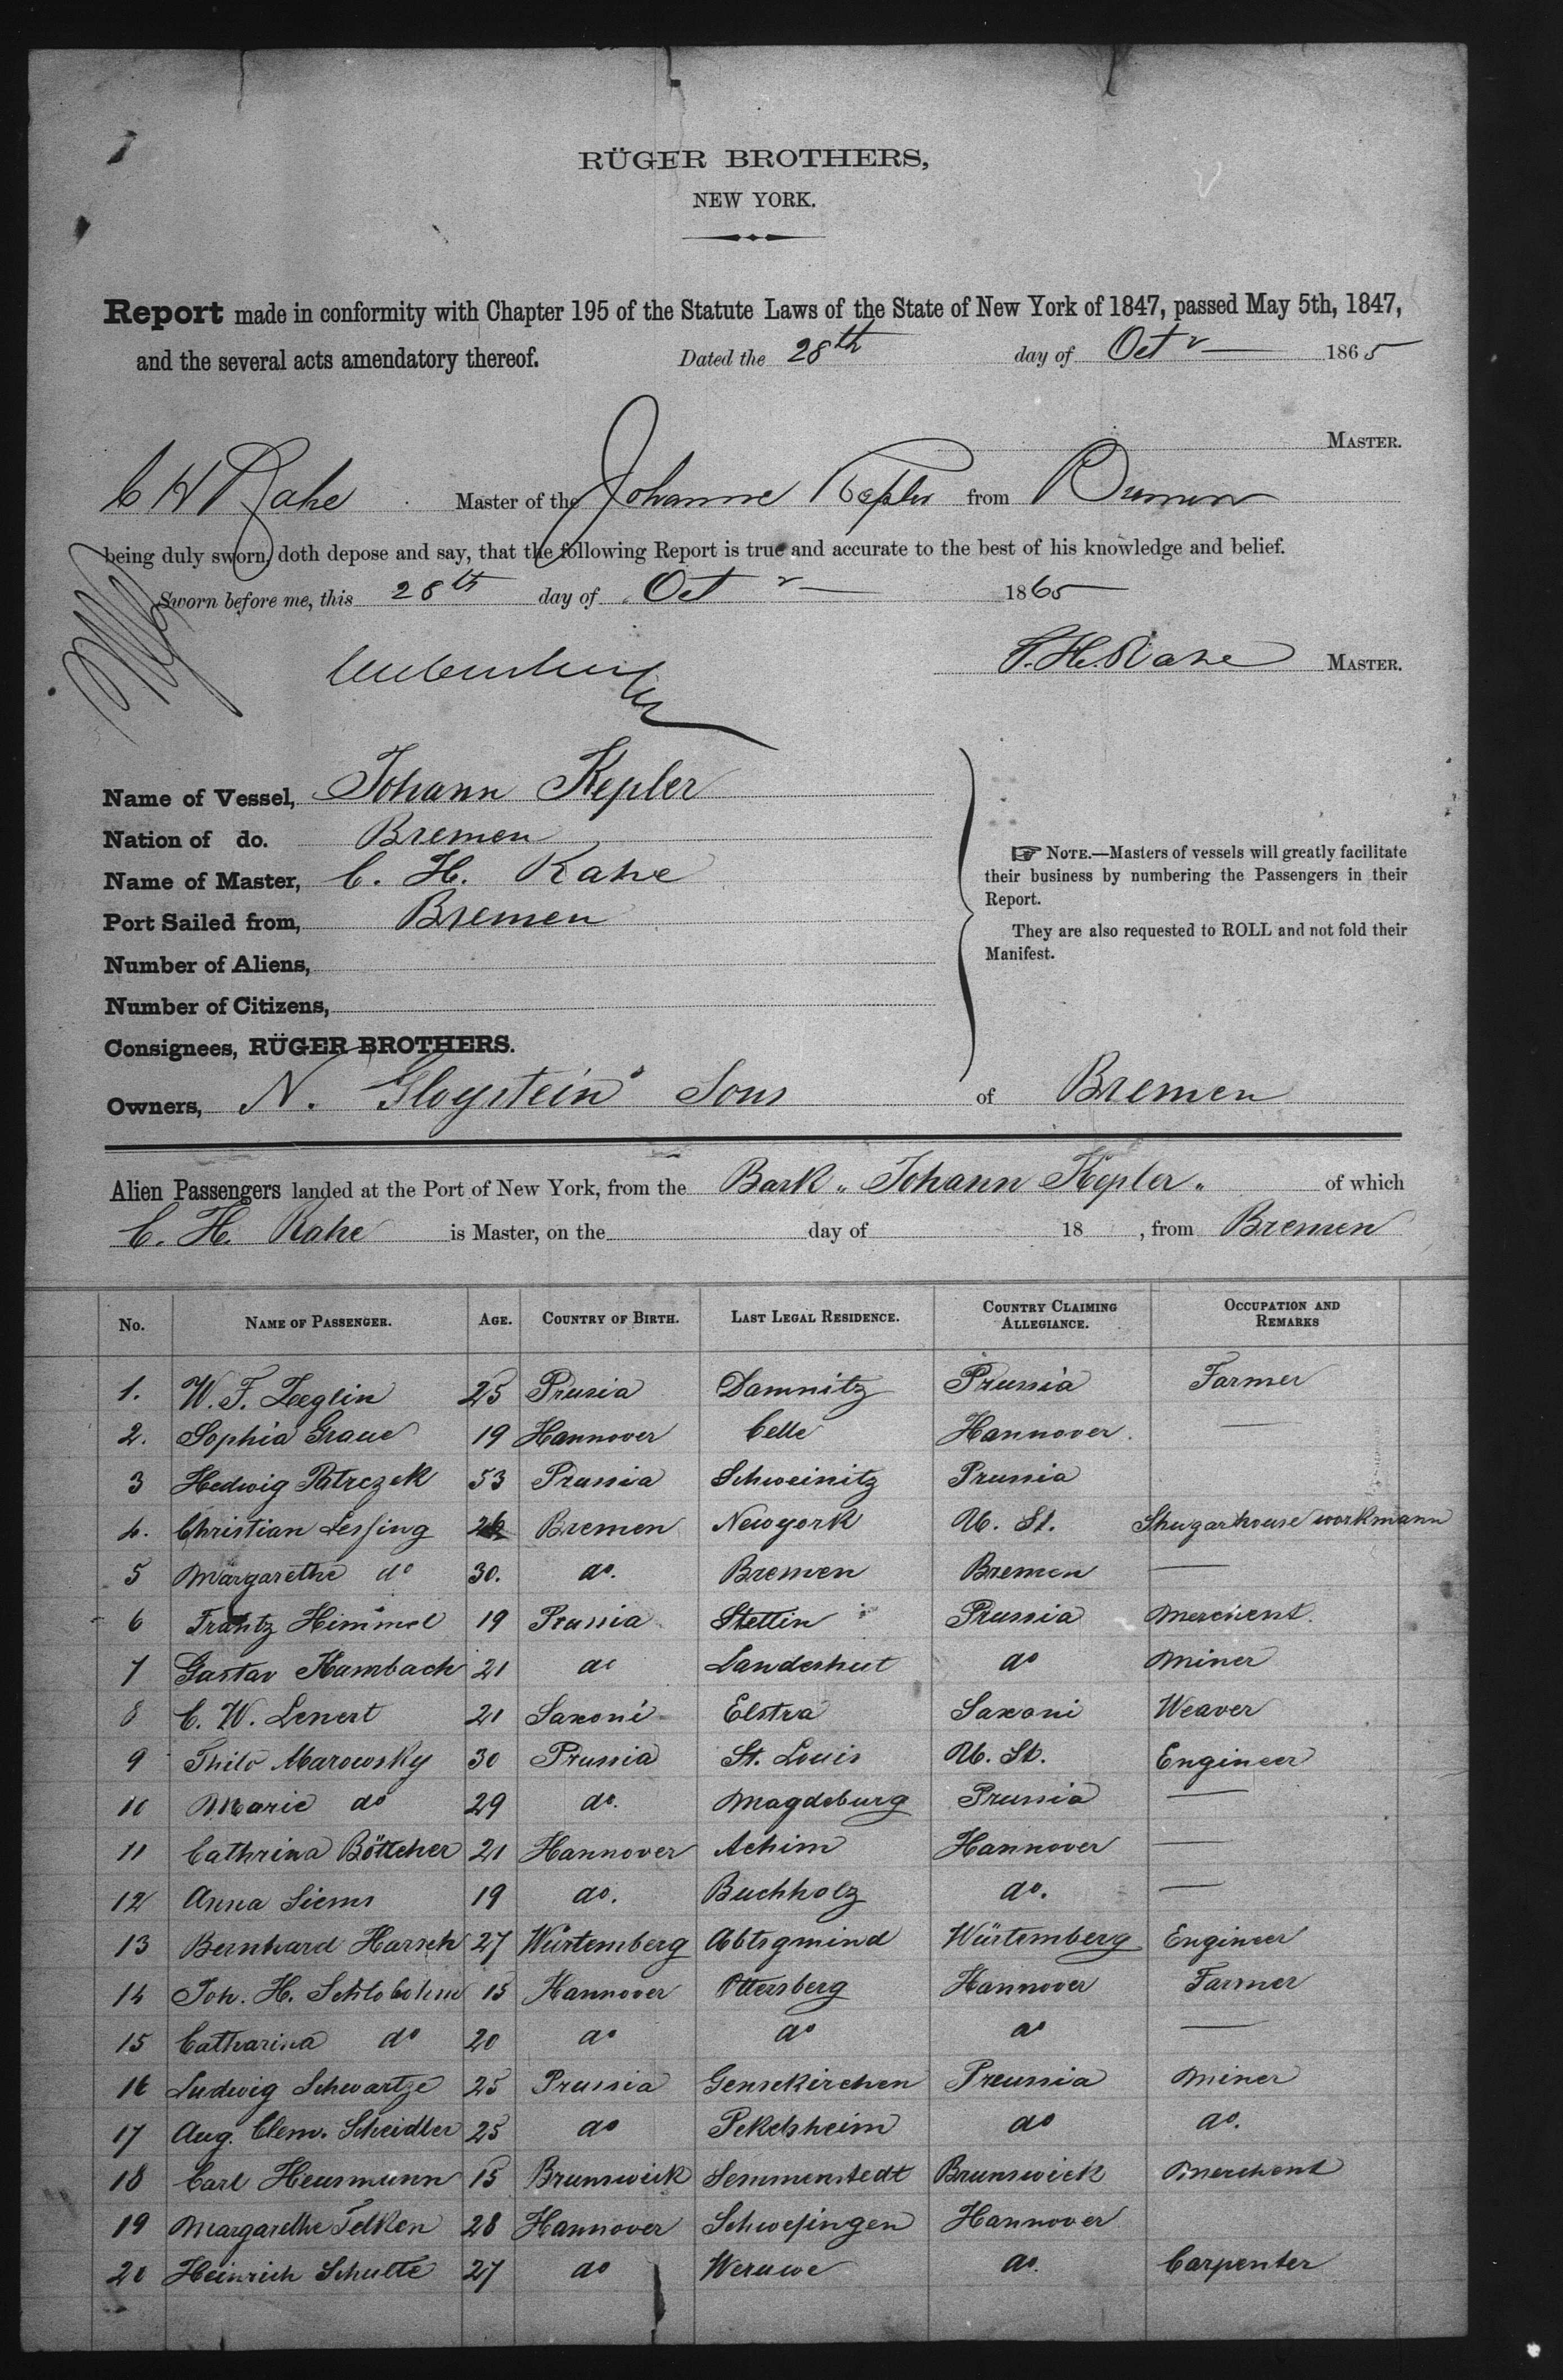 RÜGER BROTHERS,
NEW YORK.
Report made in conformity with Chapter 195 of the Statute Laws of the State of New York of 1847, passed May 5th, 1847,
and the several acts amendatory thereof. Dated the 28th day of Octr 1865
MASTER.
C H Rahe Master of the Johanne Kepler from Bremen
being duly sworn, doth depose and say, that the following Report is true and accurate to the best of his knowledge and belief.
Sworn before me, this 28th day of Octr 1865
C. H. Rahe MASTER.
Name of Vessel, Johann Kepler
Nation of do. Bremen
Name of Master, C. H. Rahe
Port Sailed from, Bremen
Number of Aliens,
Number of Citizens,
Consignees, RÜGER BROTHERS.
Owners, N. Gloystein Sons of Bremen
☞ NOTE.—Masters of vessels will greatly facilitate
their business by numbering the Passengers in their
Report.
They are also requested to ROLL and not fold their
Manifest.
Alien Passengers landed at the Port of New York, from the Bark „ Johann Kepler „ of which
C. H. Rahe is Master, on the day of 18 , from Bremen
No. NAME OF PASSENGER. AGE. COUNTRY OF BIRTH. LAST LEGAL RESIDENCE. COUNTRY CLAIMING ALLEGIANCE. OCCUPATION AND REMARKS
1. W. F. Zeeglin 25 Prusia Damnitz Prussia Farmer
2. Sophia Graue 19 Hannover Celle Hannover. —
3 Hedwig Patrczek 53 Prussia Schweinitz Prussia
4. Christian Lessing 26 Bremen Newyork U. St. Shugarhouse workmann
5 Margarethe do 30. do. Bremen Bremen —
6 Frantz Himmel 19 Prussia Stettin Prussia Merchent.
7 Gustav Kambach 21 do Landeshut do Miner
8 C. W. Lenert 21 Saxoni Elstra Saxoni Weaver
9 Thilo Marowsky 30 Prussia St. Louis U. St. Engineer
10 Marie do 29 do. Magdeburg Prussia —
11 Cathrina Böttcher 21 Hannover Achim Hannover —
12 Anna Siems 19 do. Buchholz do. —
13 Bernhard Harsch 27 Würtemberg Abtsgmind Würtemberg Engineer
14 Joh. H. Schlobohm 15 Hannover Ottersberg Hannover Farmer
15 Catharina do 20 do do do —
16 Ludwig Schwartze 25 Prussia Gensekirchen Preussia Miner
17 Aug. Clem. Scheidler 25 do Pekelsheim do do.
18 Carl Heusmann 15 Brunswick Semmenstedt Brunswick Merchent
19 Margarethe Felken 28 Hannover Schwefingen Hannover
20 Heinrich Schulte 27 do Weruwe do. Carpenter